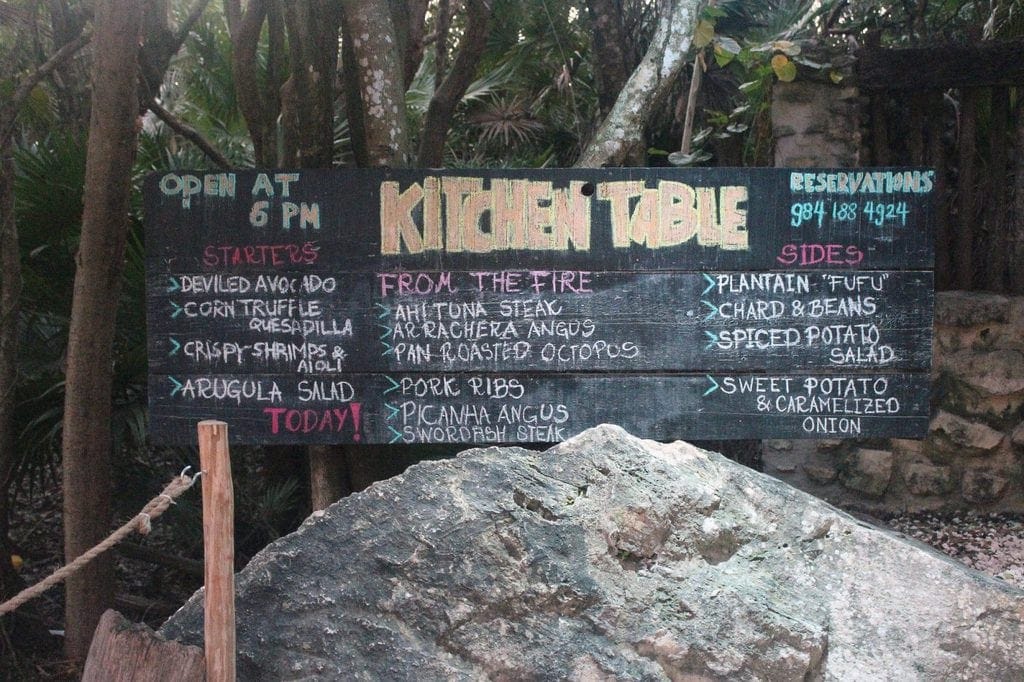 OPEN AT
6 PM
KITCHEN TABLE
RESERVATIONS
984 188 4924
STARTERS
DEVILED AVOCADO
CORN TRUFFLE
QUESADILLA
CRISPY-SHRIMPS &
AIOLI
ARUGULA SALAD
TODAY!
FROM THE FIRE
AHI TUNA STEAK
ARRACHERA ANGUS
PAN ROASTED OCTOPUS
PORK RIBS
PICANHA ANGUS
SWORDFISH STEAK
SIDES
PLANTAIN "FUFU"
CHARD & BEANS
SPICED POTATO
SALAD
SWEET POTATO
& CARAMELIZED
ONION